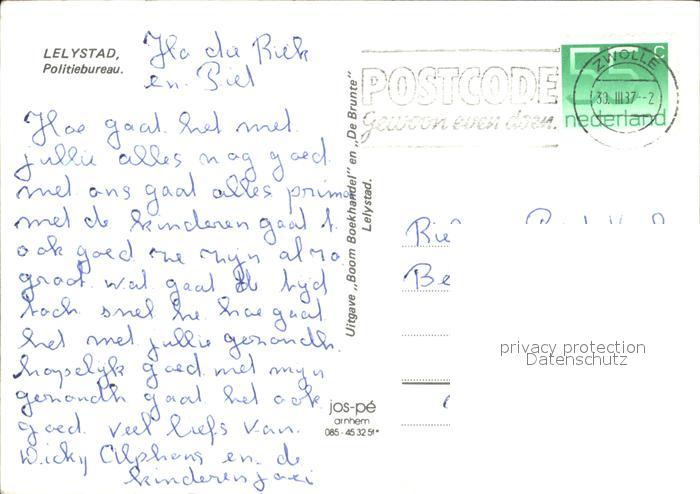 LELYSTAD,
Politiebureau.
Ha die Riek
en Piet
Hoe gaat het met
jullie alles nog goed
met ons gaat alles prima
met de kinderen gaat t.
ook goed ze zijn al zo
groot wat gaat de tijd
toch snel he. hoe gaat
het met jullie gezondh.
hopelijk goed met mijn
gezondh gaat het ook
goed. veel liefs van.
Wicky Alphons en de
kinderen
Uitgave „Boom Boekhandel" en „De Brunte"
Lelystad.
jos-pé
arnhem
085-453251*
POSTCODE
gewoon even doen.
ZWOLLE
30.III.87--2
c
nederland
Rie
Be
privacy protection
Datenschutz